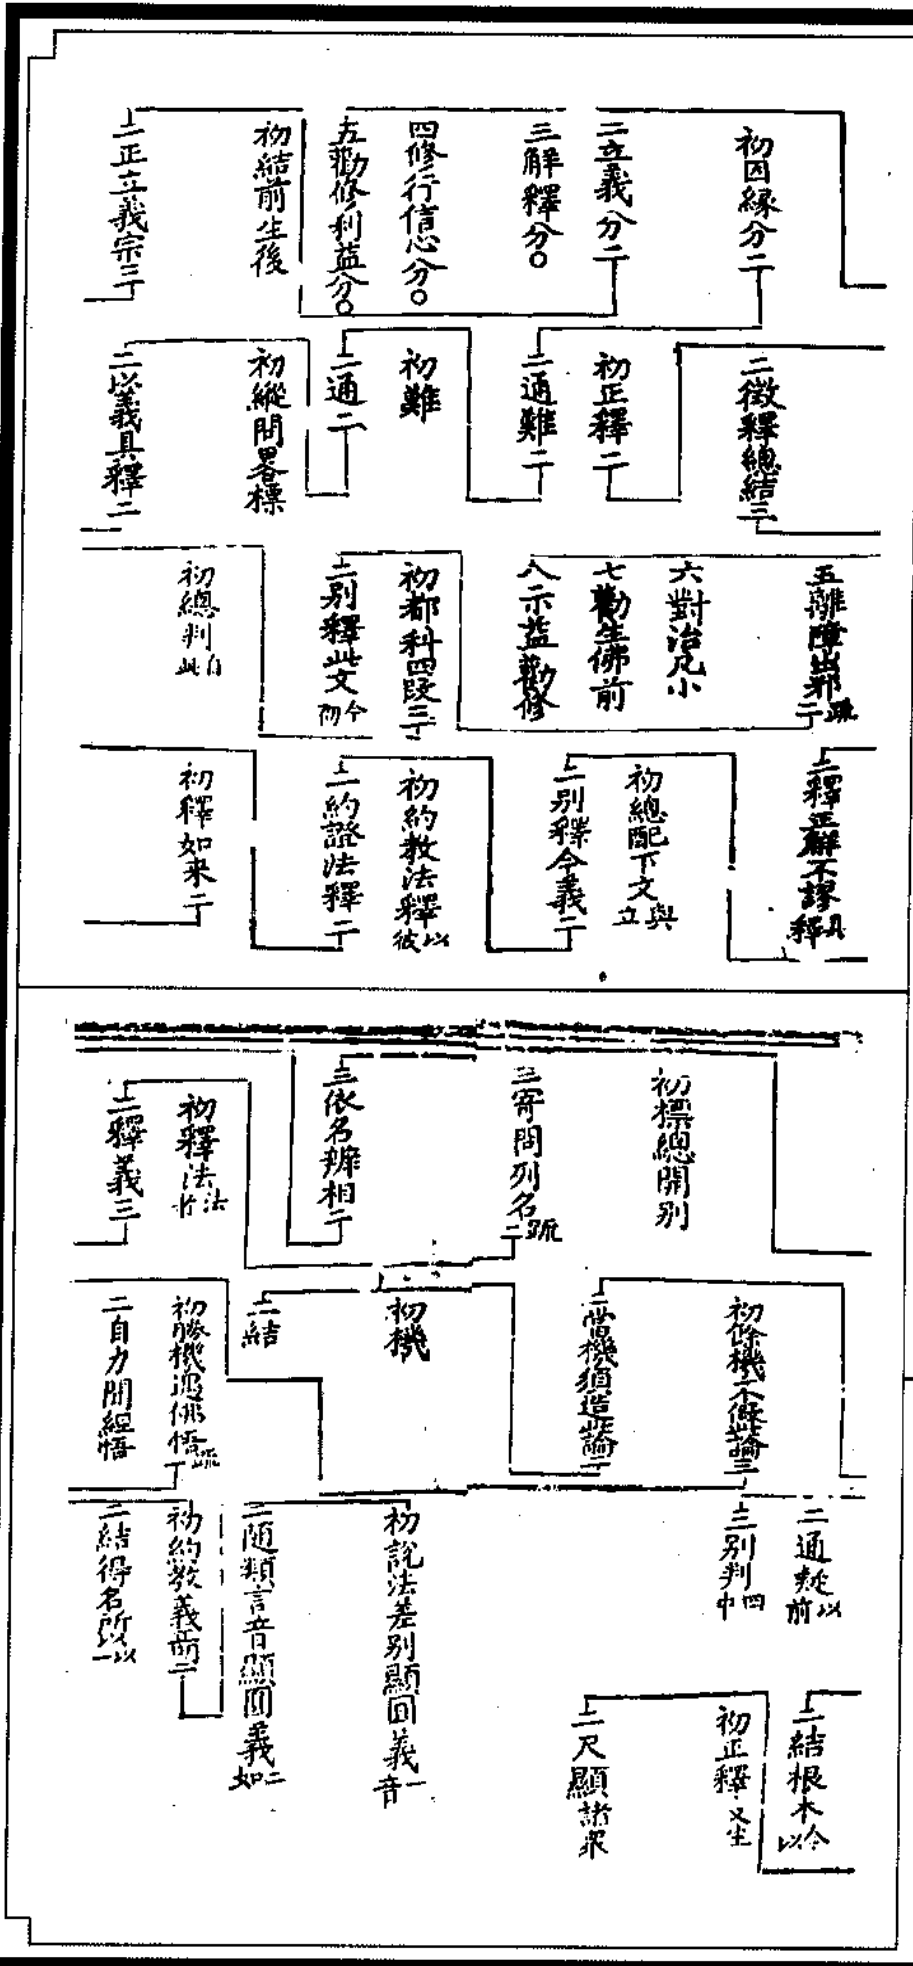 初因緣分二
二立義分二
三解釋分○
四修行信心分○
五勸修利益分○
初結前生後
二正立義宗三
二徵釋總結三
初正釋二
二通難二
初難
二通二
初縱問畧標
二以義具釋二
五離障出邪二疏
六對治凡小
七勸生佛前
八示益勸修
初都科四段三
二別釋此文今初
初總判自此
二釋正解不謬具釋
初總配下文與立
二別釋今義二
初約教法釋以彼
二約證法釋二
初釋如來二
初標總開別
二寄問列名疏二
三依名辨相二
初釋法法者
二釋義三
初餘機不假此論三
二當機須造此論二
初機
二結
初勝機遇佛悟疏二
二自力聞經悟
二通疑以前
三別判四中
初說法差別顯圓義一音
二隨類言音顯圓義二如
初約教義前二
二結得名所以一以
二結根本今以
初正釋
二尺顯諸眾